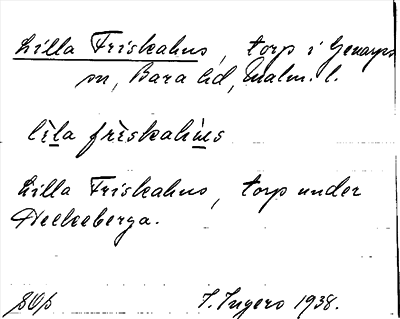 Lilla Friskahus, torp i Genarps
sn, Bara hd, Malm. l.
lìla frìskahu̇s
Lilla Friskahus, torp under
Heckeberga.
I. Ingers 1938.